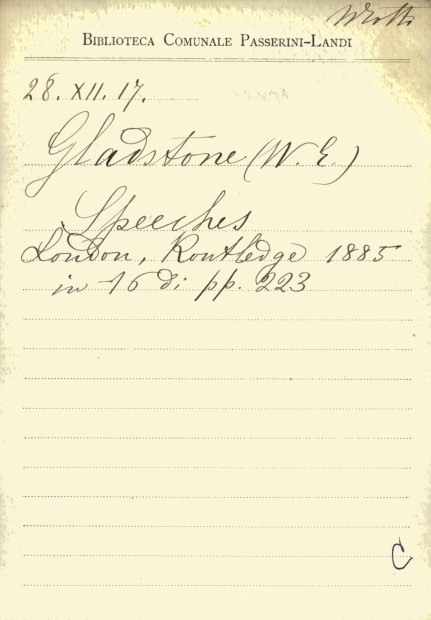 BIBLIOTECA COMUNALE PASSERINI-LANDI
28. XII. 17.
Gladstone (W. E.)
Speeches
London, Routledge 1885
in 16 di pp. 223
C